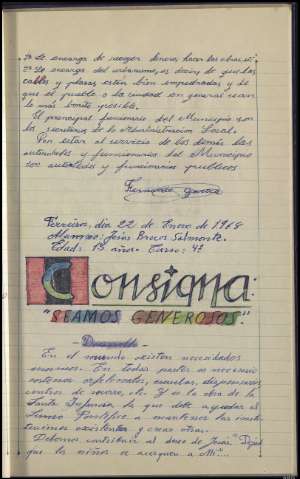 1º Se encarga de recoger dinero, hacer las obras, etc.
2º Se encarga del urbanismo, es decir, de que las
calles y plazas estén bien empedradas y de
que el pueblo o la ciudad en general sean
lo más bonito posible.
El principal funcionario del Municipio son
los secretarios de la Administración Local.
Por estar al servicio de los demás las
autoridades y funcionarios del Municipio
son autoridades y funcionarios públicos.
Fernando García
Ferreira, día 22 de Enero de 1968
Alumno: Jesús Broces Salmonte.
Edad: 13 años. Curso: 4º
Consigna:
"SEAMOS GENEROSOS".
Desarrollo
En el mundo existen necesidades
enormes. En todas partes es necesario
sostener orfelinatos, escuelas, dispensarios
centros de recreo, etc. Y es la obra de la
Santa Infancia la que debe ayudar al
Sumo Pontífice a mantener las insti-
tuciones existentes y crear otras.
Debemos contribuir al deseo de Jesús: "Dejad
que los niños se acerquen a Mí"...